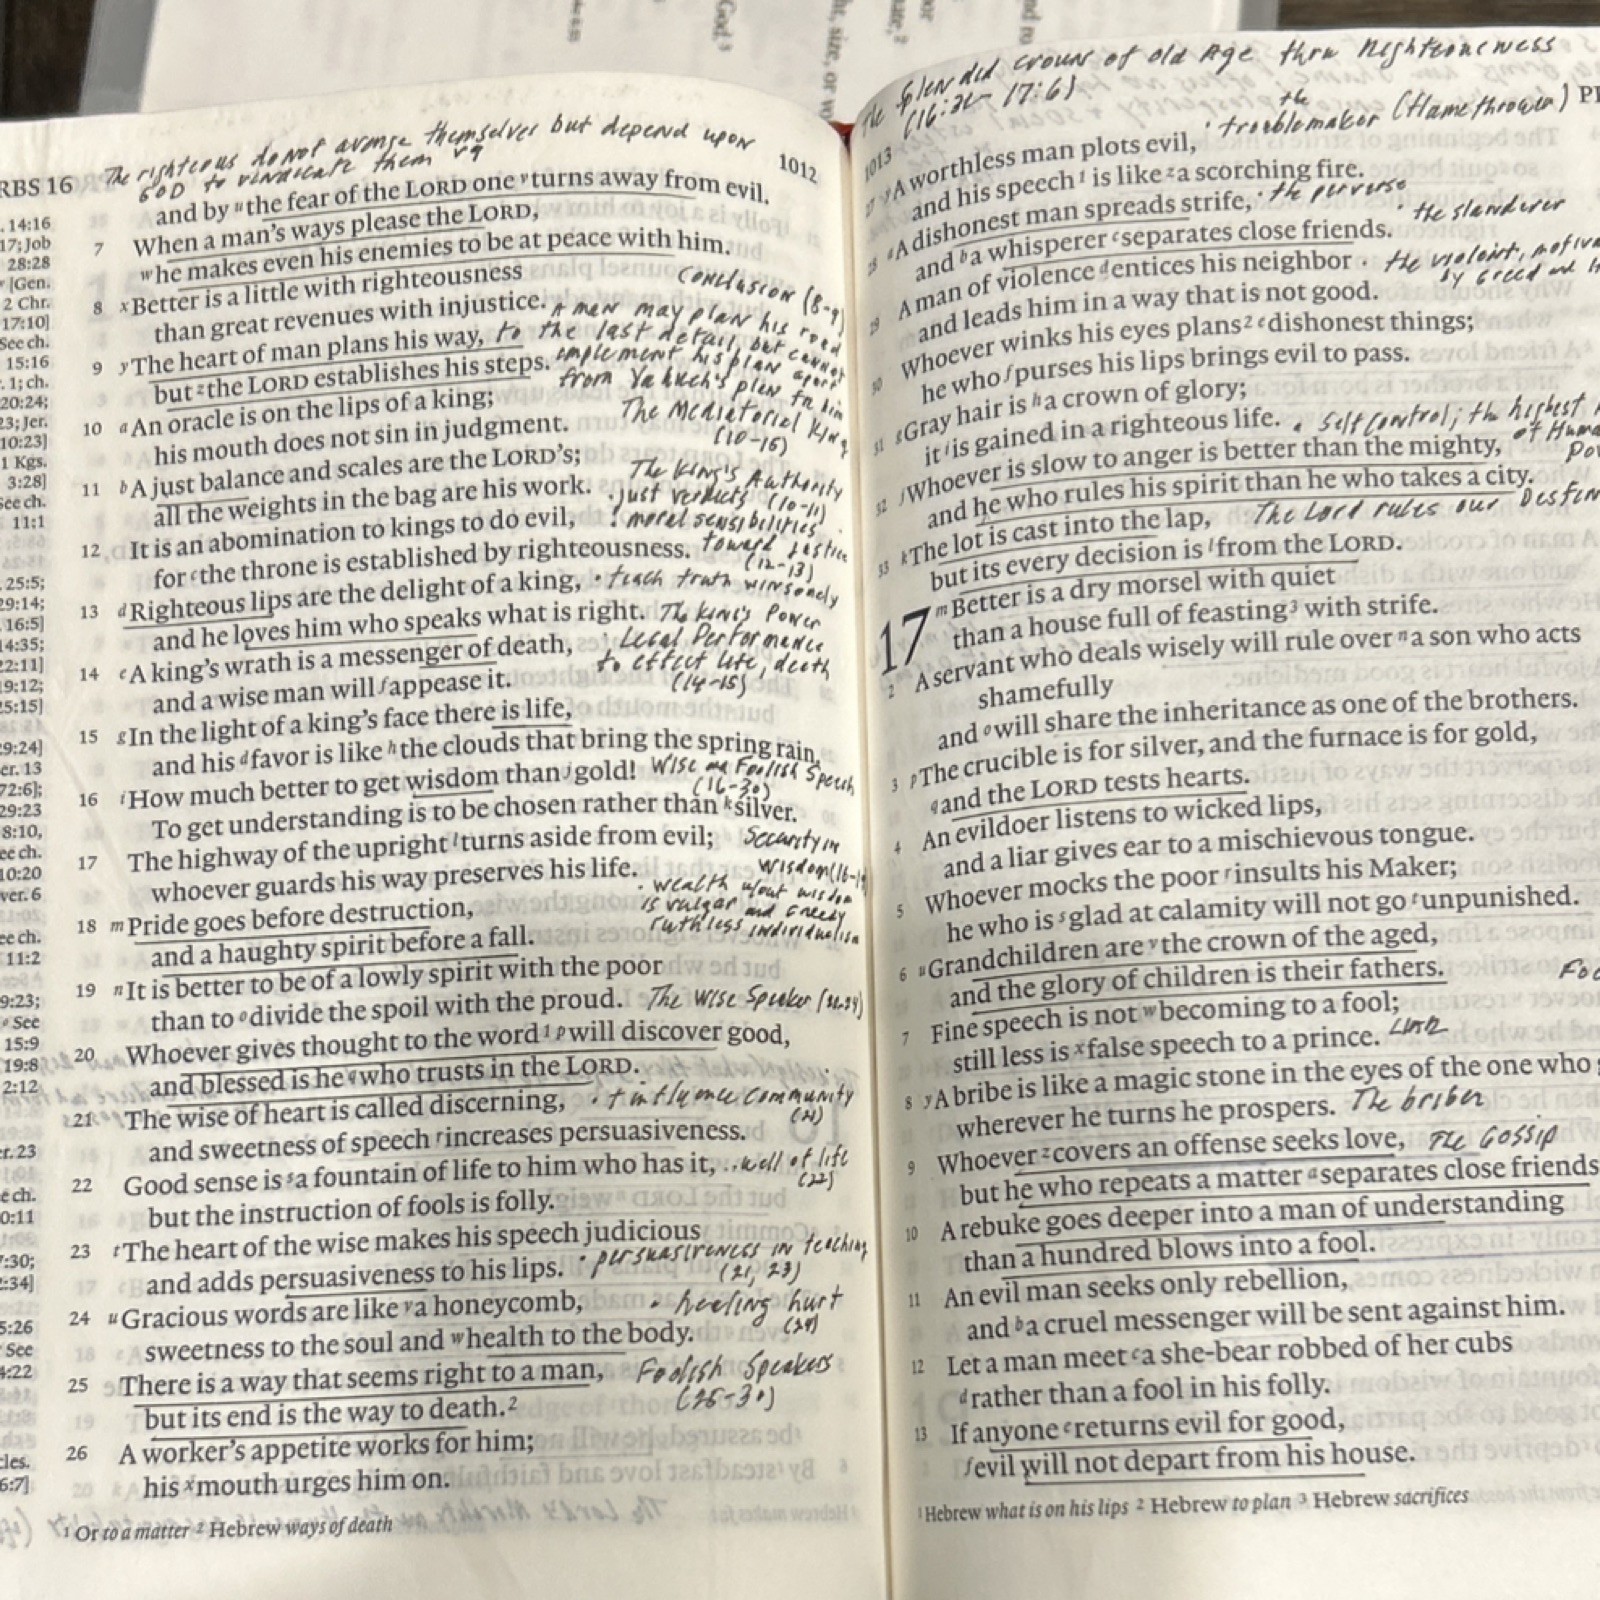 The righteous do not avenge themselves but depend upon
GOD to vindicate them v9
RBS 16
1012
and by ᵘthe fear of the LORD one ᵛturns away from evil.
7 When a man's ways please the LORD,
ʷhe makes even his enemies to be at peace with him.
8 ˣBetter is a little with righteousness
Conclusion (8-9)
than great revenues with injustice.
A man may plan his road
9 ʸThe heart of man plans his way,
to the last detail, but cannot
but ᶻthe LORD establishes his steps.
implement his plan apart
from Yahweh's plan for him
10 ᵃAn oracle is on the lips of a king;
The Mediatorial King
his mouth does not sin in judgment.
(10-15)
11 ᵇA just balance and scales are the LORD's;
The King's Authority
all the weights in the bag are his work.
· just verdicts (10-11)
12 It is an abomination to kings to do evil,
moral sensibilities
for ᶜthe throne is established by righteousness.
toward justice
(12-13)
13 ᵈRighteous lips are the delight of a king,
· teach truth winsomely
and he loves him who speaks what is right.
The King's Power
14 ᵉA king's wrath is a messenger of death,
Legal Performance
and a wise man will ᶠappease it.
to effect life, death
(14-15)
15 ᵍIn the light of a king's face there is life,
and his ᵈfavor is like ʰthe clouds that bring the spring rain.
16 ⁱHow much better to get wisdom than ʲgold!
Wise and Foolish Speech
(16-30)
To get understanding is to be chosen rather than ᵏsilver.
17 The highway of the upright ˡturns aside from evil;
Security in
whoever guards his way preserves his life.
wisdom
· wealth w/out wisdom
18 ᵐPride goes before destruction,
is vulgar and Greedy
and a haughty spirit before a fall.
ruthless individualism
19 ⁿIt is better to be of a lowly spirit with the poor
than to ᵒdivide the spoil with the proud.
The Wise Speaker
20 Whoever gives thought to the word¹ ᵖwill discover good,
and blessed is he ᑫwho trusts in the LORD.
21 The wise of heart is called discerning,
· influence community
(21)
and sweetness of speech ʳincreases persuasiveness.
22 Good sense is ˢa fountain of life to him who has it,
..well of life
(22)
but the instruction of fools is folly.
23 ᵗThe heart of the wise makes his speech judicious
and adds persuasiveness to his lips.
· persuasiveness in teaching
(21, 23)
24 ᵘGracious words are like ᵛa honeycomb,
· healing hurt
(24)
sweetness to the soul and ʷhealth to the body.
25 There is a way that seems right to a man,
Foolish Speakers
but its end is the way to death.²
(25-30)
26 A worker's appetite works for him;
his ˣmouth urges him on.
¹ Or to a matter ² Hebrew ways of death
14:16
17; Job
28:28
[Gen.
2 Chr.
17:10]
See ch.
15:16
1; ch.
20:24;
23; Jer.
10:23]
1 Kgs.
3:28]
See ch.
11:1
25:5;
29:14;
16:5]
14:35;
22:11]
19:12;
25:15]
29:24]
er. 13
72:6];
29:23
8:10,
ee ch.
10:20
ver. 6
ee ch.
11:2
9:23;
See
15:9
19:8
2:12
r. 23
e ch.
0:11
7:30;
2:34]
5:26
See
4:22
cles.
6:7]
The splendid crown of old Age thru Righteousness
(16:31- 17:6)
1013
· the troublemaker (flamethrower)
27 ʸA worthless man plots evil,
and his speech¹ is like ᶻa scorching fire.
28 ᵃA dishonest man spreads strife,
· the perverse
and ᵇa whisperer ᶜseparates close friends.
· the slanderer
29 A man of violence ᵈentices his neighbor
· the violent,
by greed
and leads him in a way that is not good.
30 Whoever winks his eyes plans² ᵉdishonest things;
he who ᶠpurses his lips brings evil to pass.
31 ᵍGray hair is ʰa crown of glory;
it ⁱis gained in a righteous life.
· Self control; the highest
of Human
32 ʲWhoever is slow to anger is better than the mighty,
and he who rules his spirit than he who takes a city.
33 ᵏThe lot is cast into the lap,
The Lord rules our
but its every decision is ˡfrom the LORD.
17 ᵐBetter is a dry morsel with quiet
than a house full of feasting³ with strife.
2 A servant who deals wisely will rule over ⁿa son who acts
shamefully
and ᵒwill share the inheritance as one of the brothers.
3 ᵖThe crucible is for silver, and the furnace is for gold,
ᑫand the LORD tests hearts.
4 An evildoer listens to wicked lips,
and a liar gives ear to a mischievous tongue.
5 Whoever mocks the poor ʳinsults his Maker;
he who is ˢglad at calamity will not go ᵗunpunished.
6 ᵘGrandchildren are ᵛthe crown of the aged,
and the glory of children is their fathers.
7 Fine speech is not ʷbecoming to a fool;
still less is ˣfalse speech to a prince.
8 ʸA bribe is like a magic stone in the eyes of the one who
wherever he turns he prospers.
The briber
9 Whoever ᶻcovers an offense seeks love,
The Gossip
but he who repeats a matter ᵃseparates close friends
10 A rebuke goes deeper into a man of understanding
than a hundred blows into a fool.
11 An evil man seeks only rebellion,
and ᵇa cruel messenger will be sent against him.
12 Let a man meet ᶜa she-bear robbed of her cubs
ᵈrather than a fool in his folly.
13 If anyone ᵉreturns evil for good,
ᶠevil will not depart from his house.
¹ Hebrew what is on his lips ² Hebrew to plan ³ Hebrew sacrifices